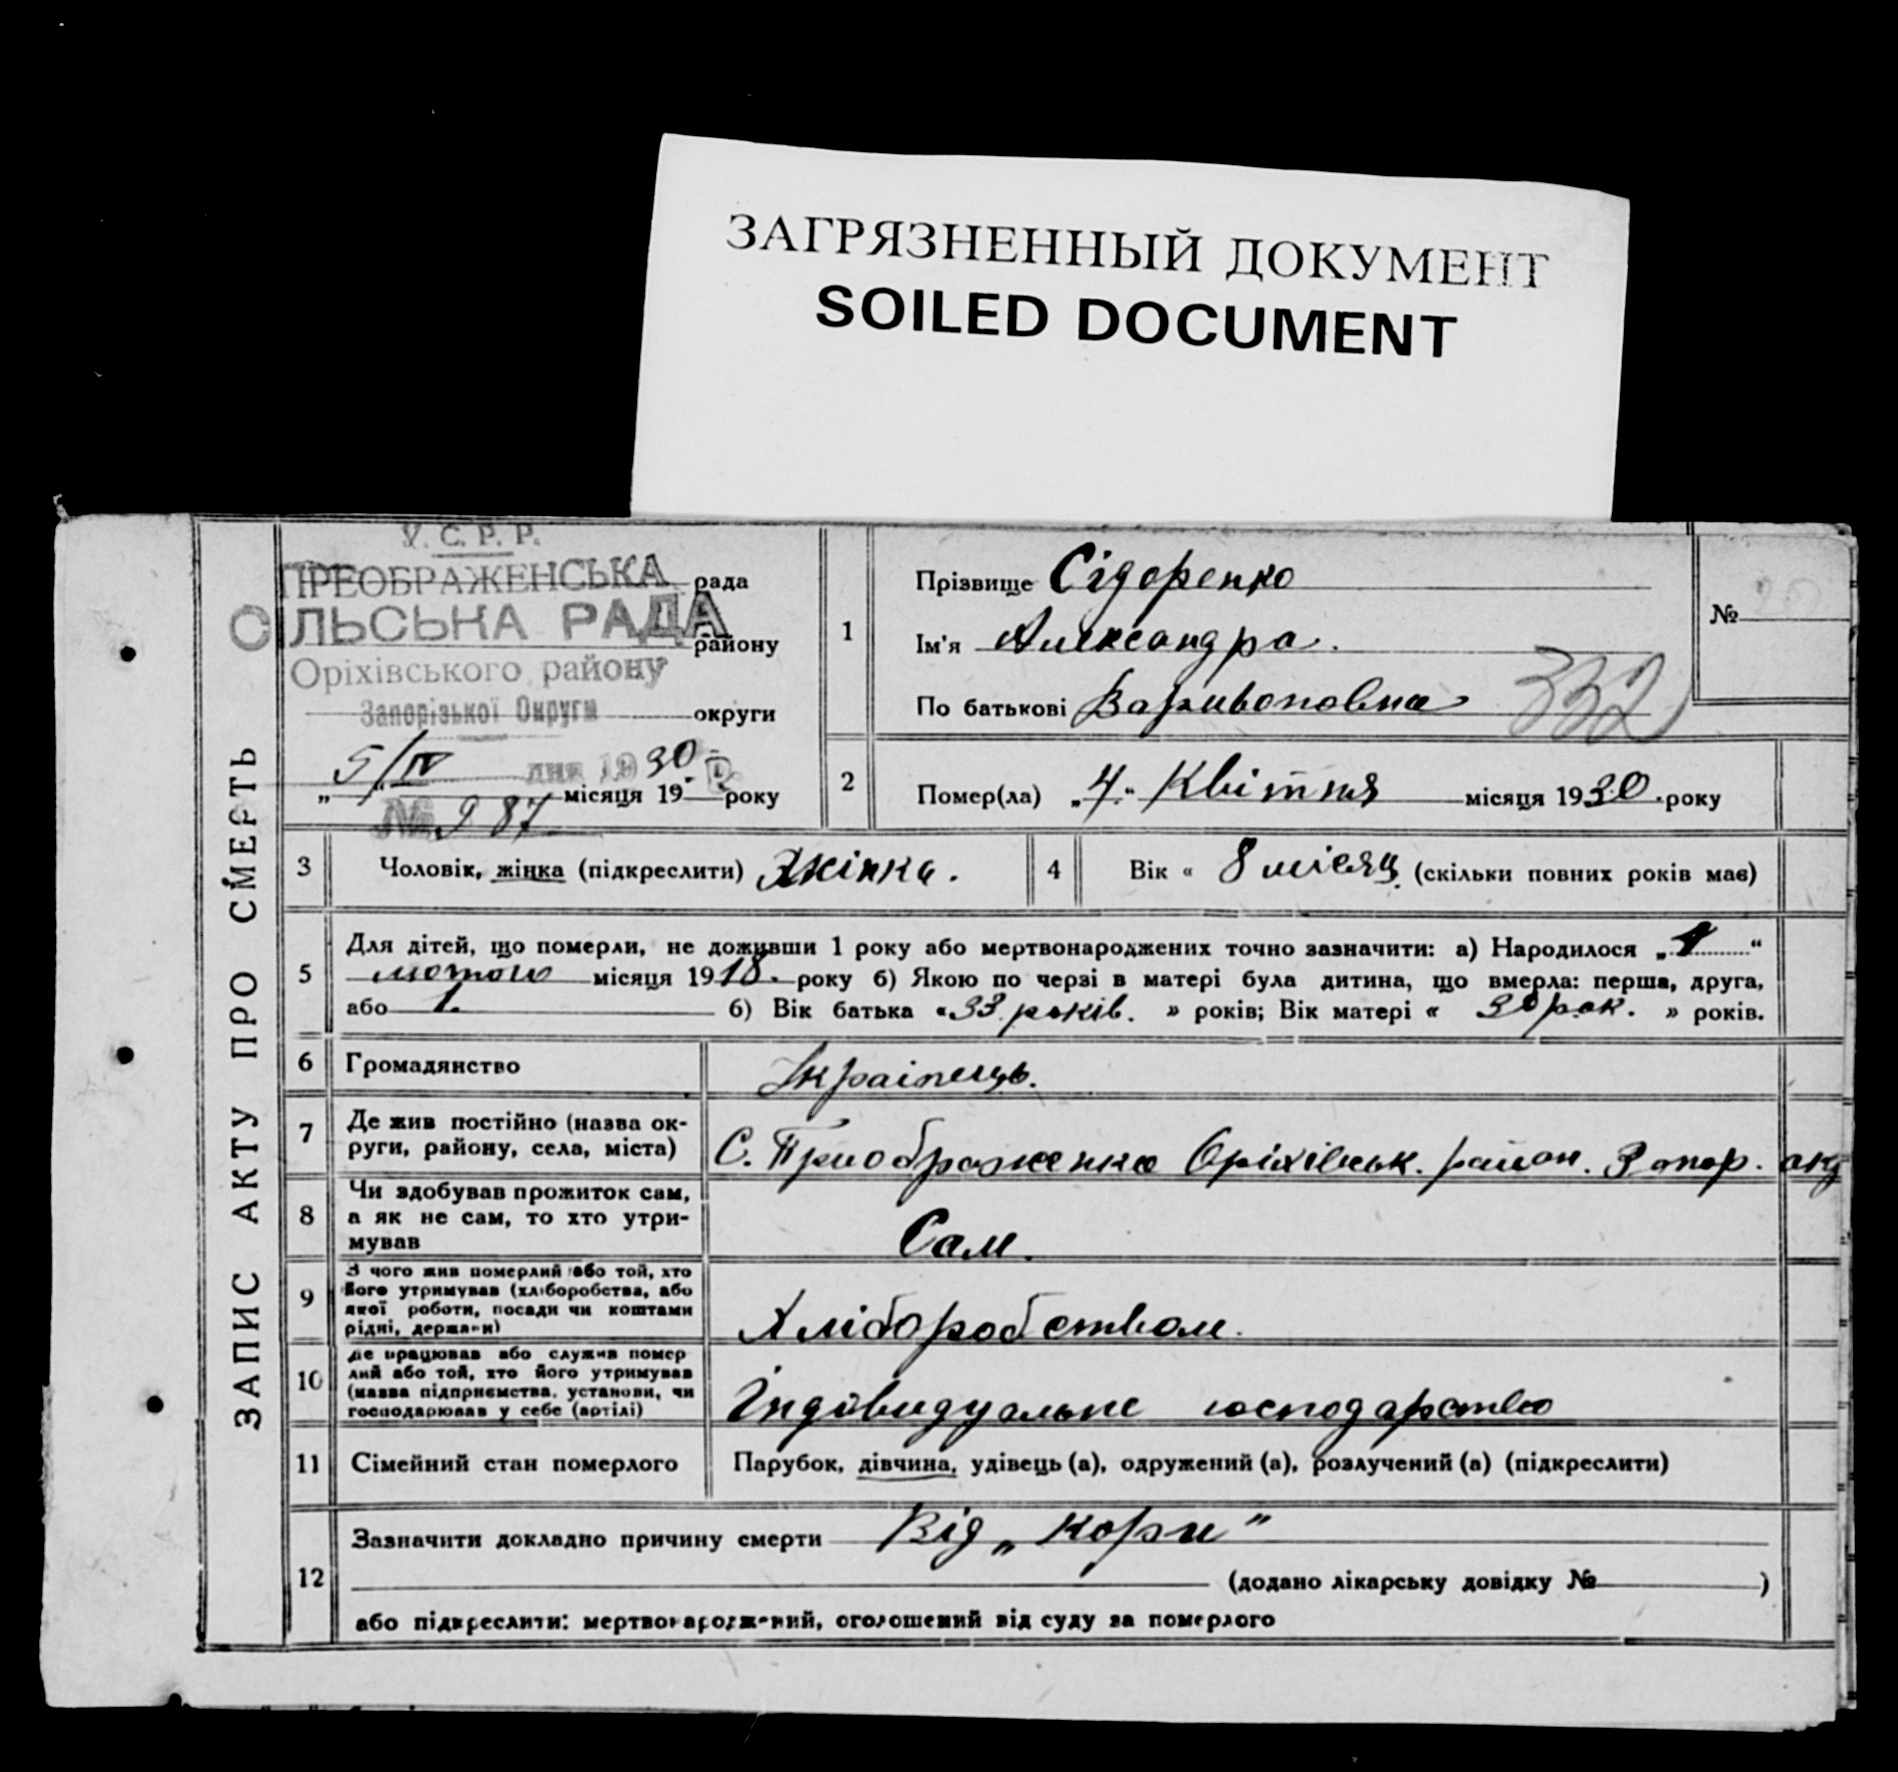 ЗАГРЯЗНЕННЫЙ ДОКУМЕНТ
SOILED DOCUMENT
ЗАПИС АКТУ ПРО СМЕРТЬ
У. С. Р. Р.
ПРЕОБРАЖЕНСЬКА рада
СІЛЬСЬКА РАДА
району
Оріхівського району
Запорізької Округи округи
5/IV дня 1930 р.
„ місяця 19 року
№ 987
1
Прізвище Сідоренко
Ім'я Александра.
По батькові Варивоновна
332
№ 20
2
Помер(ла) „4“ Квітня місяця 1930 року
3
Чоловік, жінка (підкреслити) Жінка.
4
Вік « 8 місяц. (скільки повних років має)
5
Для дітей, що померли, не доживши 1 року або мертвонароджених точно зазначити: а) Народилося „1“
лютого місяця 1918. року б) Якою по черзі в матері була дитина, що вмерла: перша, друга,
або 1. б) Вік батька «33 років. » років; Вік матері « 30 рок. » років.
6
Громадянство
Українець.
7
Де жив постійно (назва ок-
руги, району, села, міста)
С. Приображенка Оріхівськ. район. Запор. окр
8
Чи здобував прожиток сам,
а як не сам, то хто утри-
мував
Сам.
9
З чого жив померлий або той, хто
його утримував (хліборобства, або
якої роботи, посади чи коштами
рідні, держави)
Хліборобством.
10
Де працював або служив помер
лий або той, хто його утримував
(назва підприємства, установи, чи
господарював у себе (артілі)
Індивидуальне господарство
11
Сімейний стан померлого
Парубок, дівчина, удівець (а), одружений (а), розлучений (а) (підкреслити)
12
Зазначити докладно причину смерти Від „кори“
(додано лікарську довідку № )
або підкреслити: мертвонароджений, оголошений від суду за померлого